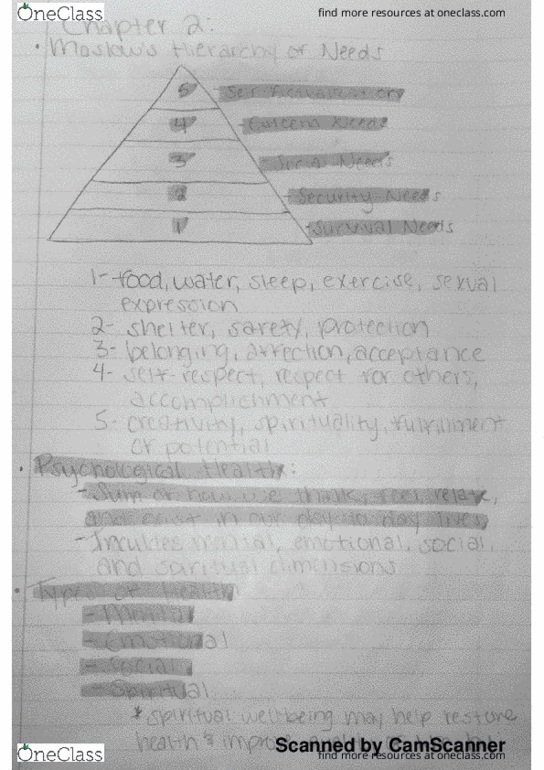 OneClass
find more resources at oneclass.com
Chapter 2:
• Maslow's Hierarchy of Needs
5 - Self Actualization
4 - Esteem Needs
3 - Social Needs
2 - Security Needs
1 - Survival Needs
1- food, water, sleep, exercise, sexual
expression
2- shelter, safety, protection
3- belonging, affection, acceptance
4- self-respect, respect for others,
accomplichment
5- creativity, spirituality, fulfillment
of potential
• Psychological Health:
- Sum of how we think, feel, relate,
and exist in our day to day lives
- Inculdes mental, emotional, social,
and spiritual dimensions
• Types of Health
- Mental
- Emotional
- Social
- Spiritual
* spiritual wellbeing may help restore
health & improve quality of
Scanned by CamScanner
OneClass
find more resources at oneclass.com